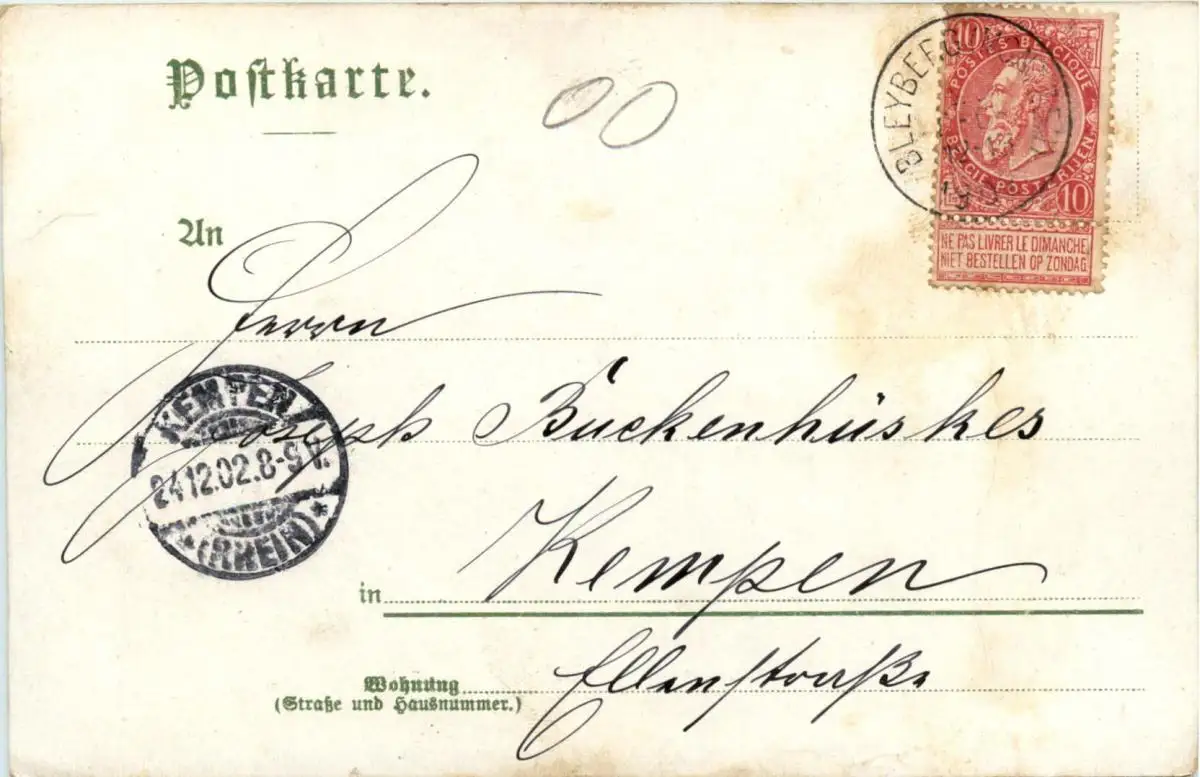 Postkarte.
00
An
Herrn
Joseph Bückenhüskes
in Kempen
Wohnung Ellenstraße
(Straße und Hausnummer.)
10
POSTES BELGIQUE
BELGIE POSTERIJEN
10
NE PAS LIVRER LE DIMANCHE
NIET BESTELLEN OP ZONDAG
BLEYBERG
KEMPEN
24.12.02.8-9V.
*(RHEIN)*